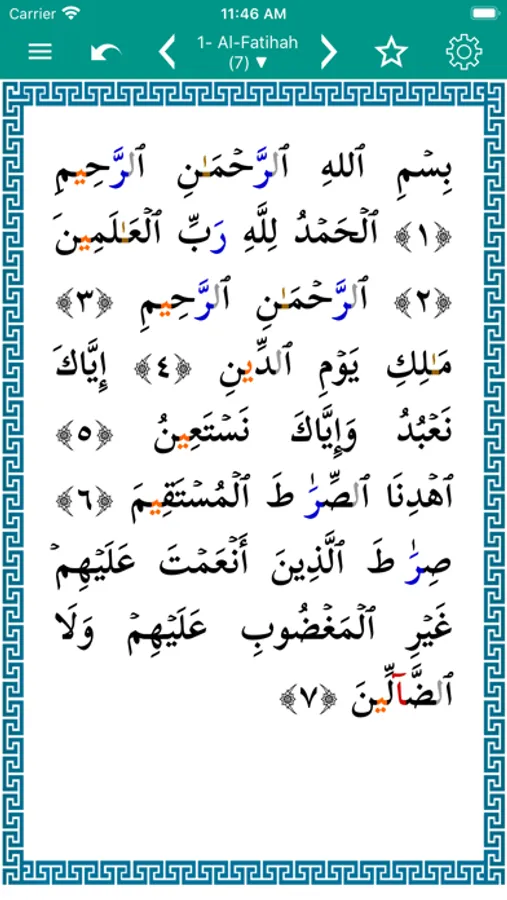 Carrier 11:46 AM
1- Al-Fatihah
(7) ▼
بِسۡمِ ٱللهِ ٱلرَّحۡمَـٰنِ ٱلرَّحِيمِ
﴿١﴾ ٱلۡحَمۡدُ لِلَّهِ رَبِّ ٱلۡعَـٰلَمِينَ
﴿٢﴾ ٱلرَّحۡمَـٰنِ ٱلرَّحِيمِ ﴿٣﴾
مَـٰلِكِ يَوۡمِ ٱلدِّينِ ﴿٤﴾ إِيَّاكَ
نَعۡبُدُ وَإِيَّاكَ نَسۡتَعِينُ ﴿٥﴾
ٱهۡدِنَا ٱلصِّرَٰطَ ٱلۡمُسۡتَقِيمَ ﴿٦﴾
صِرَٰطَ ٱلَّذِينَ أَنۡعَمۡتَ عَلَيۡهِمۡ
غَيۡرِ ٱلۡمَغۡضُوبِ عَلَيۡهِمۡ وَلَا
ٱلضَّآلِّينَ ﴿٧﴾